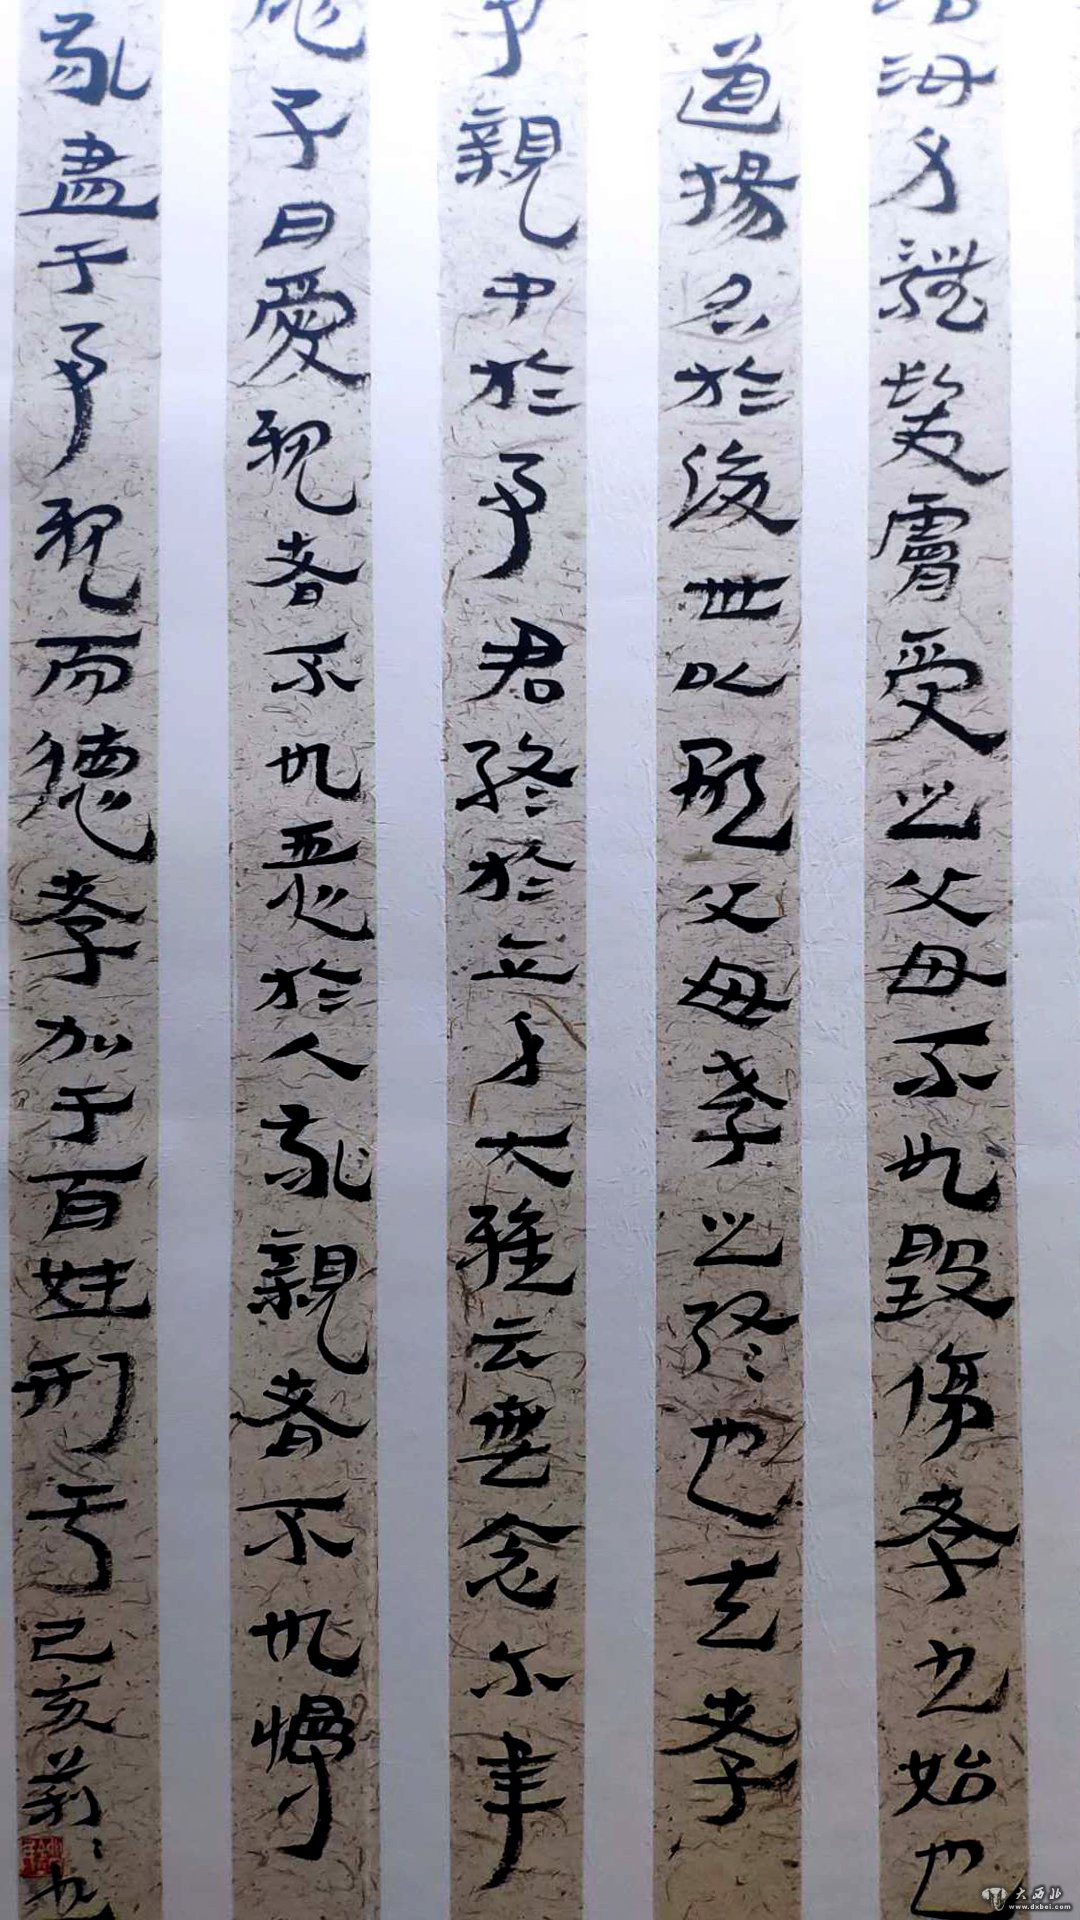 汝身體髮膚受之父母不敢毀傷孝之始也
道揚名於後世以顯父母孝之終也夫孝
事親中於事君終於立身大雅云無念尔聿
子曰愛親者不敢惡於人敬親者不敢慢
敬盡于事親而德孝加于百姓刑于己亥莉
大西北
www.dxbei.com